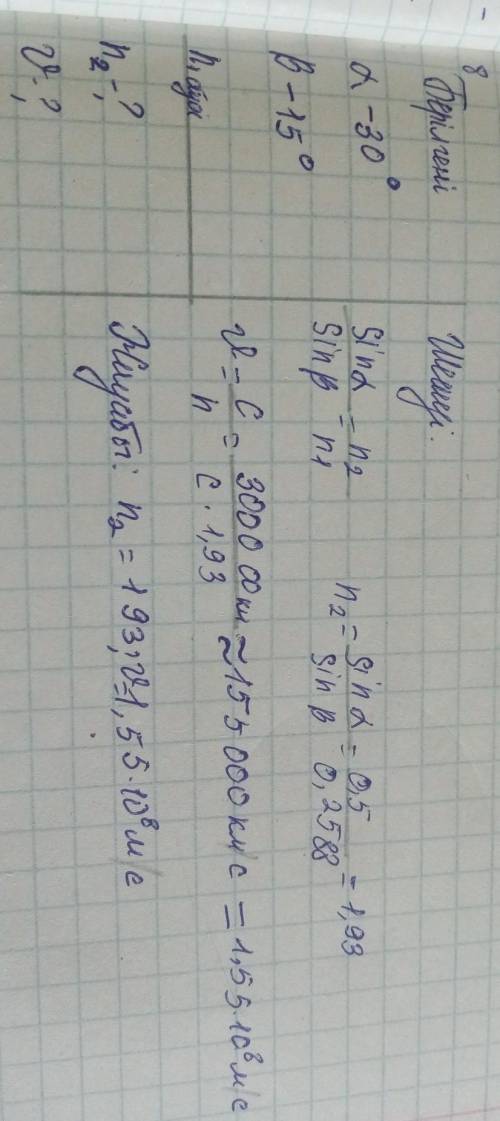 8
Берілгені
α - 30°
β - 15°
n₁ ауа
n₂ - ?
υ - ?
Шешуі:
sinα / sinβ = n2 / n1    n₂ = sinα / sinβ = 0,5 / 0,2588 = 1,93
υ = c / n = 300000 км / с · 1,93 ≈ 155 000 км/с = 1,55·10⁸ м/с
Жауабы: n₂ = 1 93; υ=1,55·10⁸ м/с